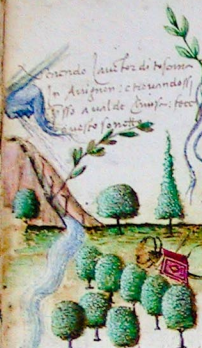 Venendo lauctor di thosca
In Avignon: e trovandossi
presso a val de clusa: fece
questo sonetto